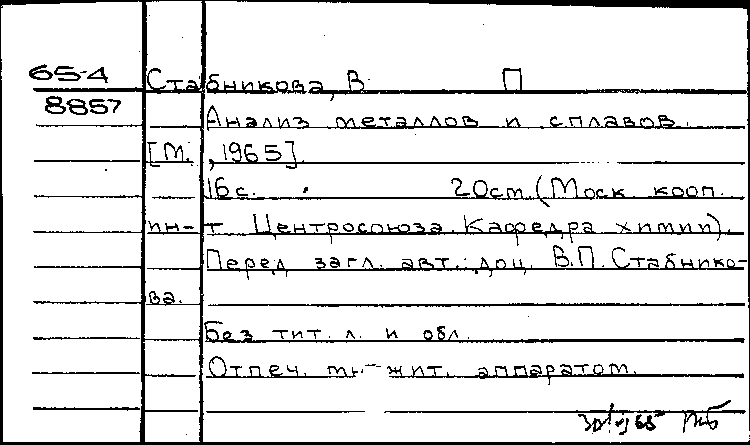 65-4 Стабникова, В. П
8857
Анализ металлов и сплавов.
[М., 1965].
16 с. 20 см. (Моск кооп.
ин-т Центросоюза. Кафедра химии).
Перед загл. авт.: доц. В.П. Стабнико-
ва.
Без тит. л. и обл.
Отпеч. множит. аппаратом.